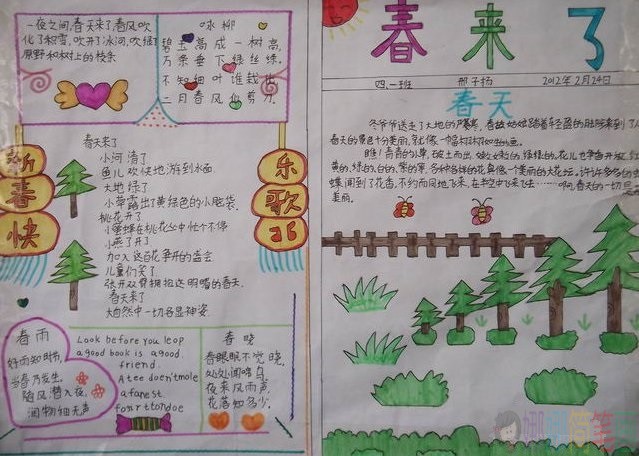 一夜之间,春天来了,春风吹
化了积雪,吹开了冰河,吹绿了
原野和树上的枝条
咏柳
碧玉高成一树高,
万条垂下绿丝绦,
不知细叶谁裁出,
二月春风似剪刀.
新春快
乐
歌
春天来了
小河清了
鱼儿欢快地游到水面
大地绿了
小草露出了黄绿色的小脑袋.
桃花开了
小蜜蜂在桃花丛中忙个不停
小燕子开了
加入这百花争开的盛会
儿童们笑了
张开双臂拥抱这明媚的春天.
春天来了
大自然中一切各显神姿
春雨
好雨知时节,
当春乃发生.
随风潜入夜,
润物细无声
Look before you leap
a good book is a good
friend.
A tee doen'tmole
a fanest
春晓
春眠眠不觉晓,
处处闻啼鸟,
夜来风雨声
花落知多少.
春来了
四.一班
邢子杨
2012年2月24日
春天
冬爷爷送走了大地的严寒,春姑姑姑踏着轻盈的脚步来到了人
春天的景色十分美丽,就像一幅
瞧!青青的小草,破土而出,
黄的,绿的,白的,紫的,各种各样的花真像一个美丽的大花坛,许许多多的
蝶,闻到了花香,不约而同地飞来,在半空中飞来飞去……啊,春天的一切
美丽.